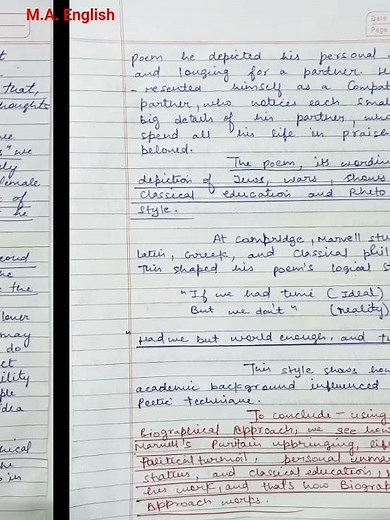 M.A. English
Date
Page
that,
thoughts
we
" we
ly
female
of
he
second
he
the
lover
may
do
ct
ility
ple
dea
hical
he
s in
Poem he depicted his personal
and longing for a partner. H
- resented himself as a Compat
partner, who notices each small
big details of his partner, who
spend all his life in praise
beloved.
The poem, its wordin
depiction of Jews, wars, shows
Classical education and Rheto
style.
At Cambridge, Marvell stu
Latin, Greek, and Classical phil
This shaped his poem's logical s
"If we had time (Ideal)
But we don't" (reality)
"Had we but world enough, and t
This style shows how
academic background influenced
Poetic Technique.
To conclude - using
Biographical Approach, we see how
Marvell's Puritan upbringing, life
Political turmoil, personal unmar
status, and classical education,
his work, and that's how Biograp
Approach works.